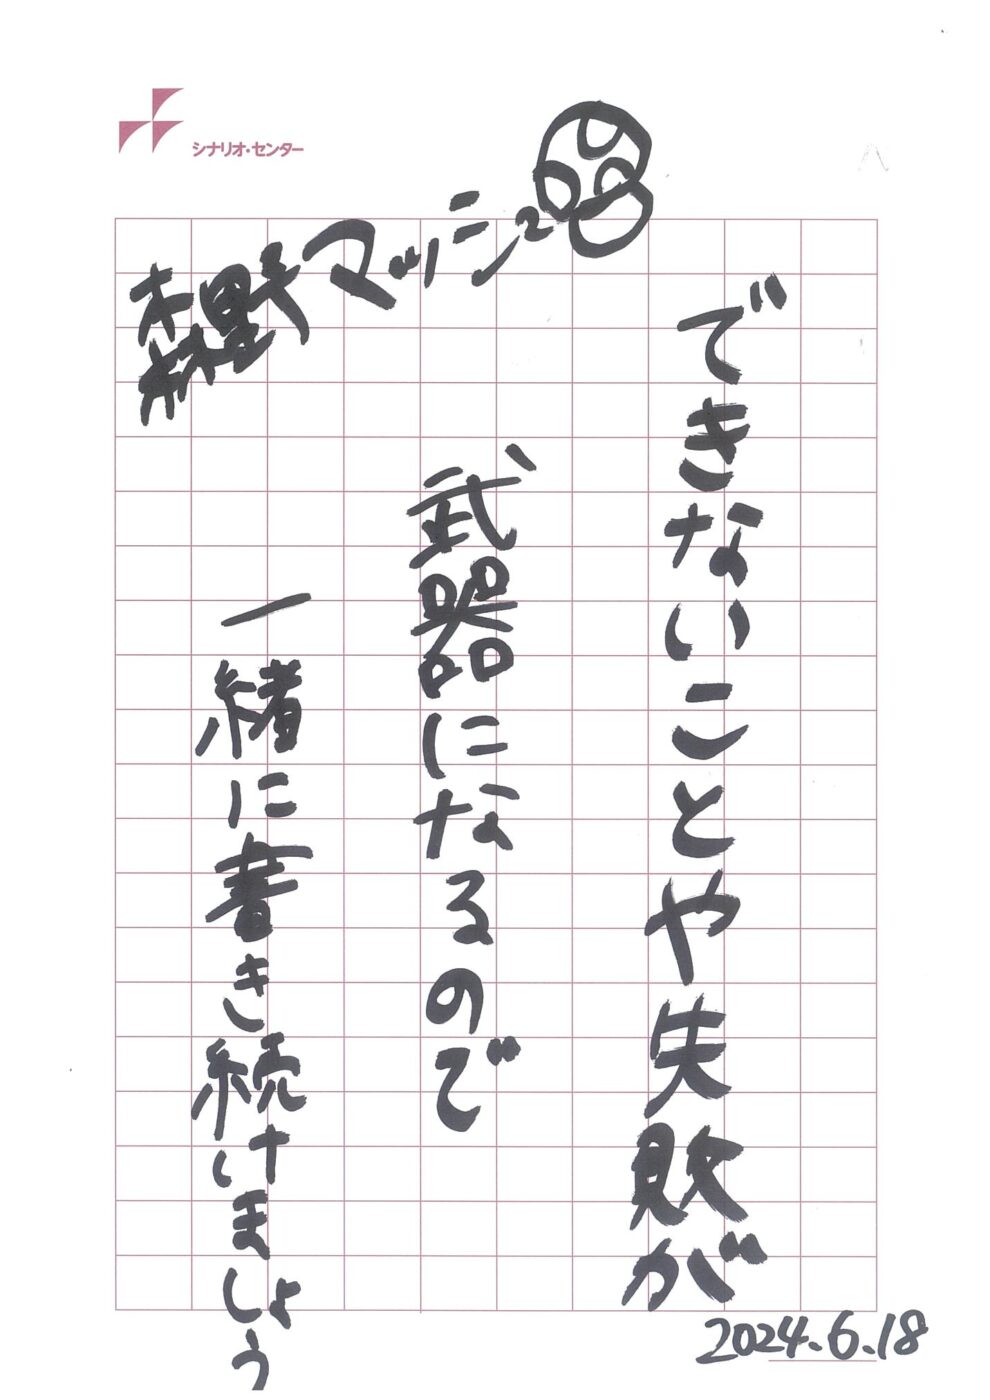 シナリオ・センター
できないことや失敗が
武器になるので
一緒に書き続けましょう
森野マッシュ
2024.6.18